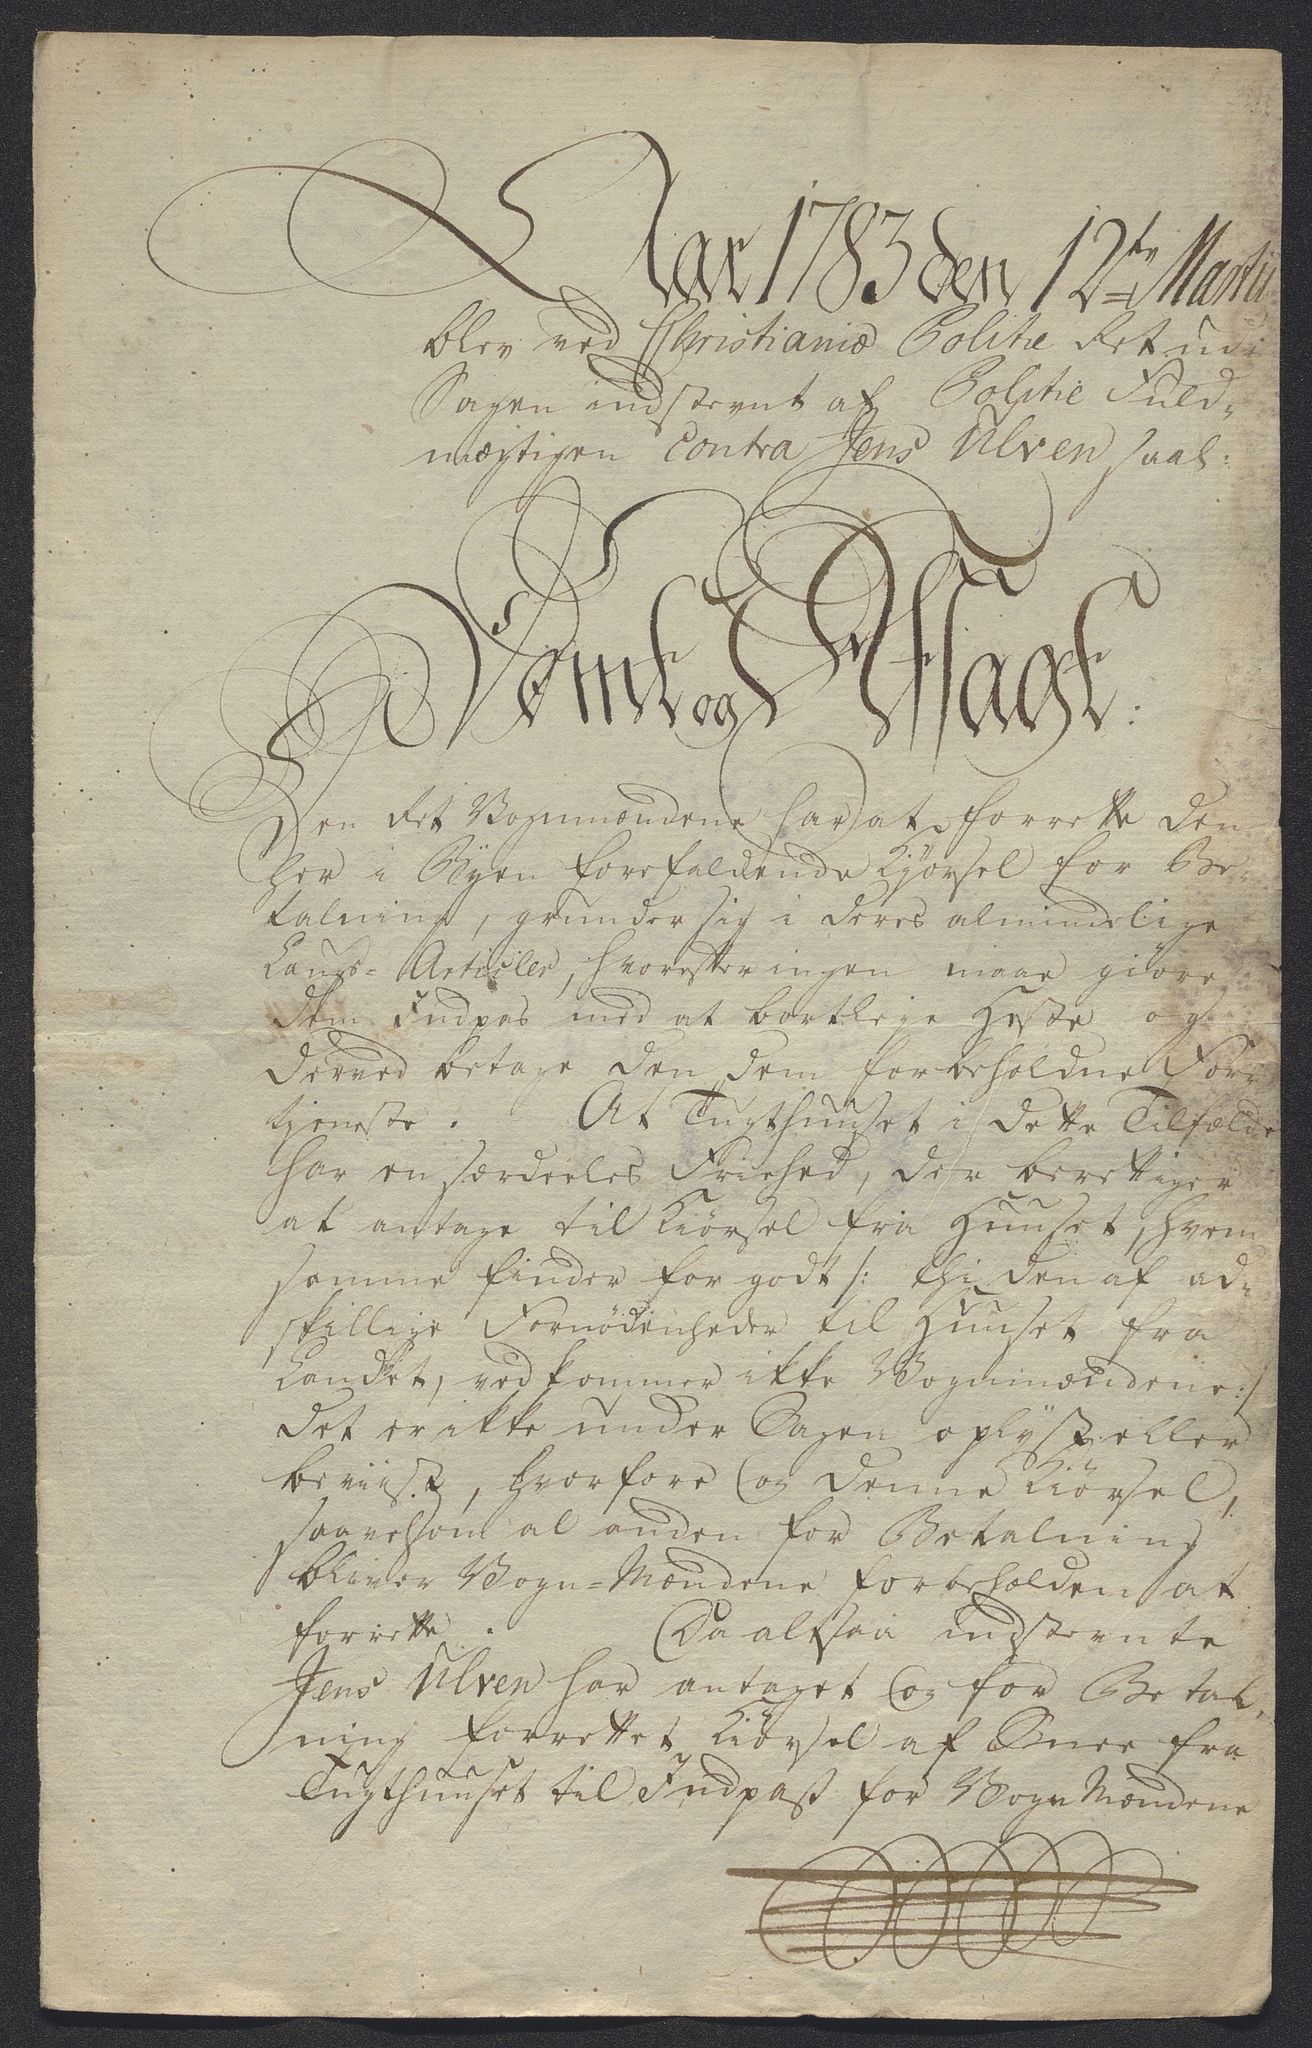 Aar 1783 den 12te Martii
blev ved Christianiæ Politie Ret udi
Sagen indstevnt af Politie Fuld-
mægtigen Contra Jens Ulven saal:
Dømt og Afsagt:
Den Ret Vognmændene har at forrette den
her i Byen forefaldende Kjørsel for Be-
talning, grunder sig i deres almindelige
Laugs-Articler, hvorefter ingen maae giøre
dem Indpas med at bortleye Heste og
derved betage den dem forbeholdne For-
tjeneste. At Tugthuuset i dette Tilfælde
har en særdeeles Friehed, der berettiger
at antage til Kiørsel fra Huuset, hvem
samme finder for godt /: thi den af ad-
skillige Fornødenheder til Huuset fra
Landet, vedkommer ikke Vognmændene :/
det er ikke under Sagen oplyst eller
beviist, hvorfore og denne Kiørsel,
saavelsom al anden for Betalning
bliver Vogn-Mændene forbeholden at
forrette. Da altsaa indstevnte
Jens Ulven har antaget og for Betal-
ning forrettet Kiørsel af Snee fra
Tugthuuset til Indpass for VognMændene